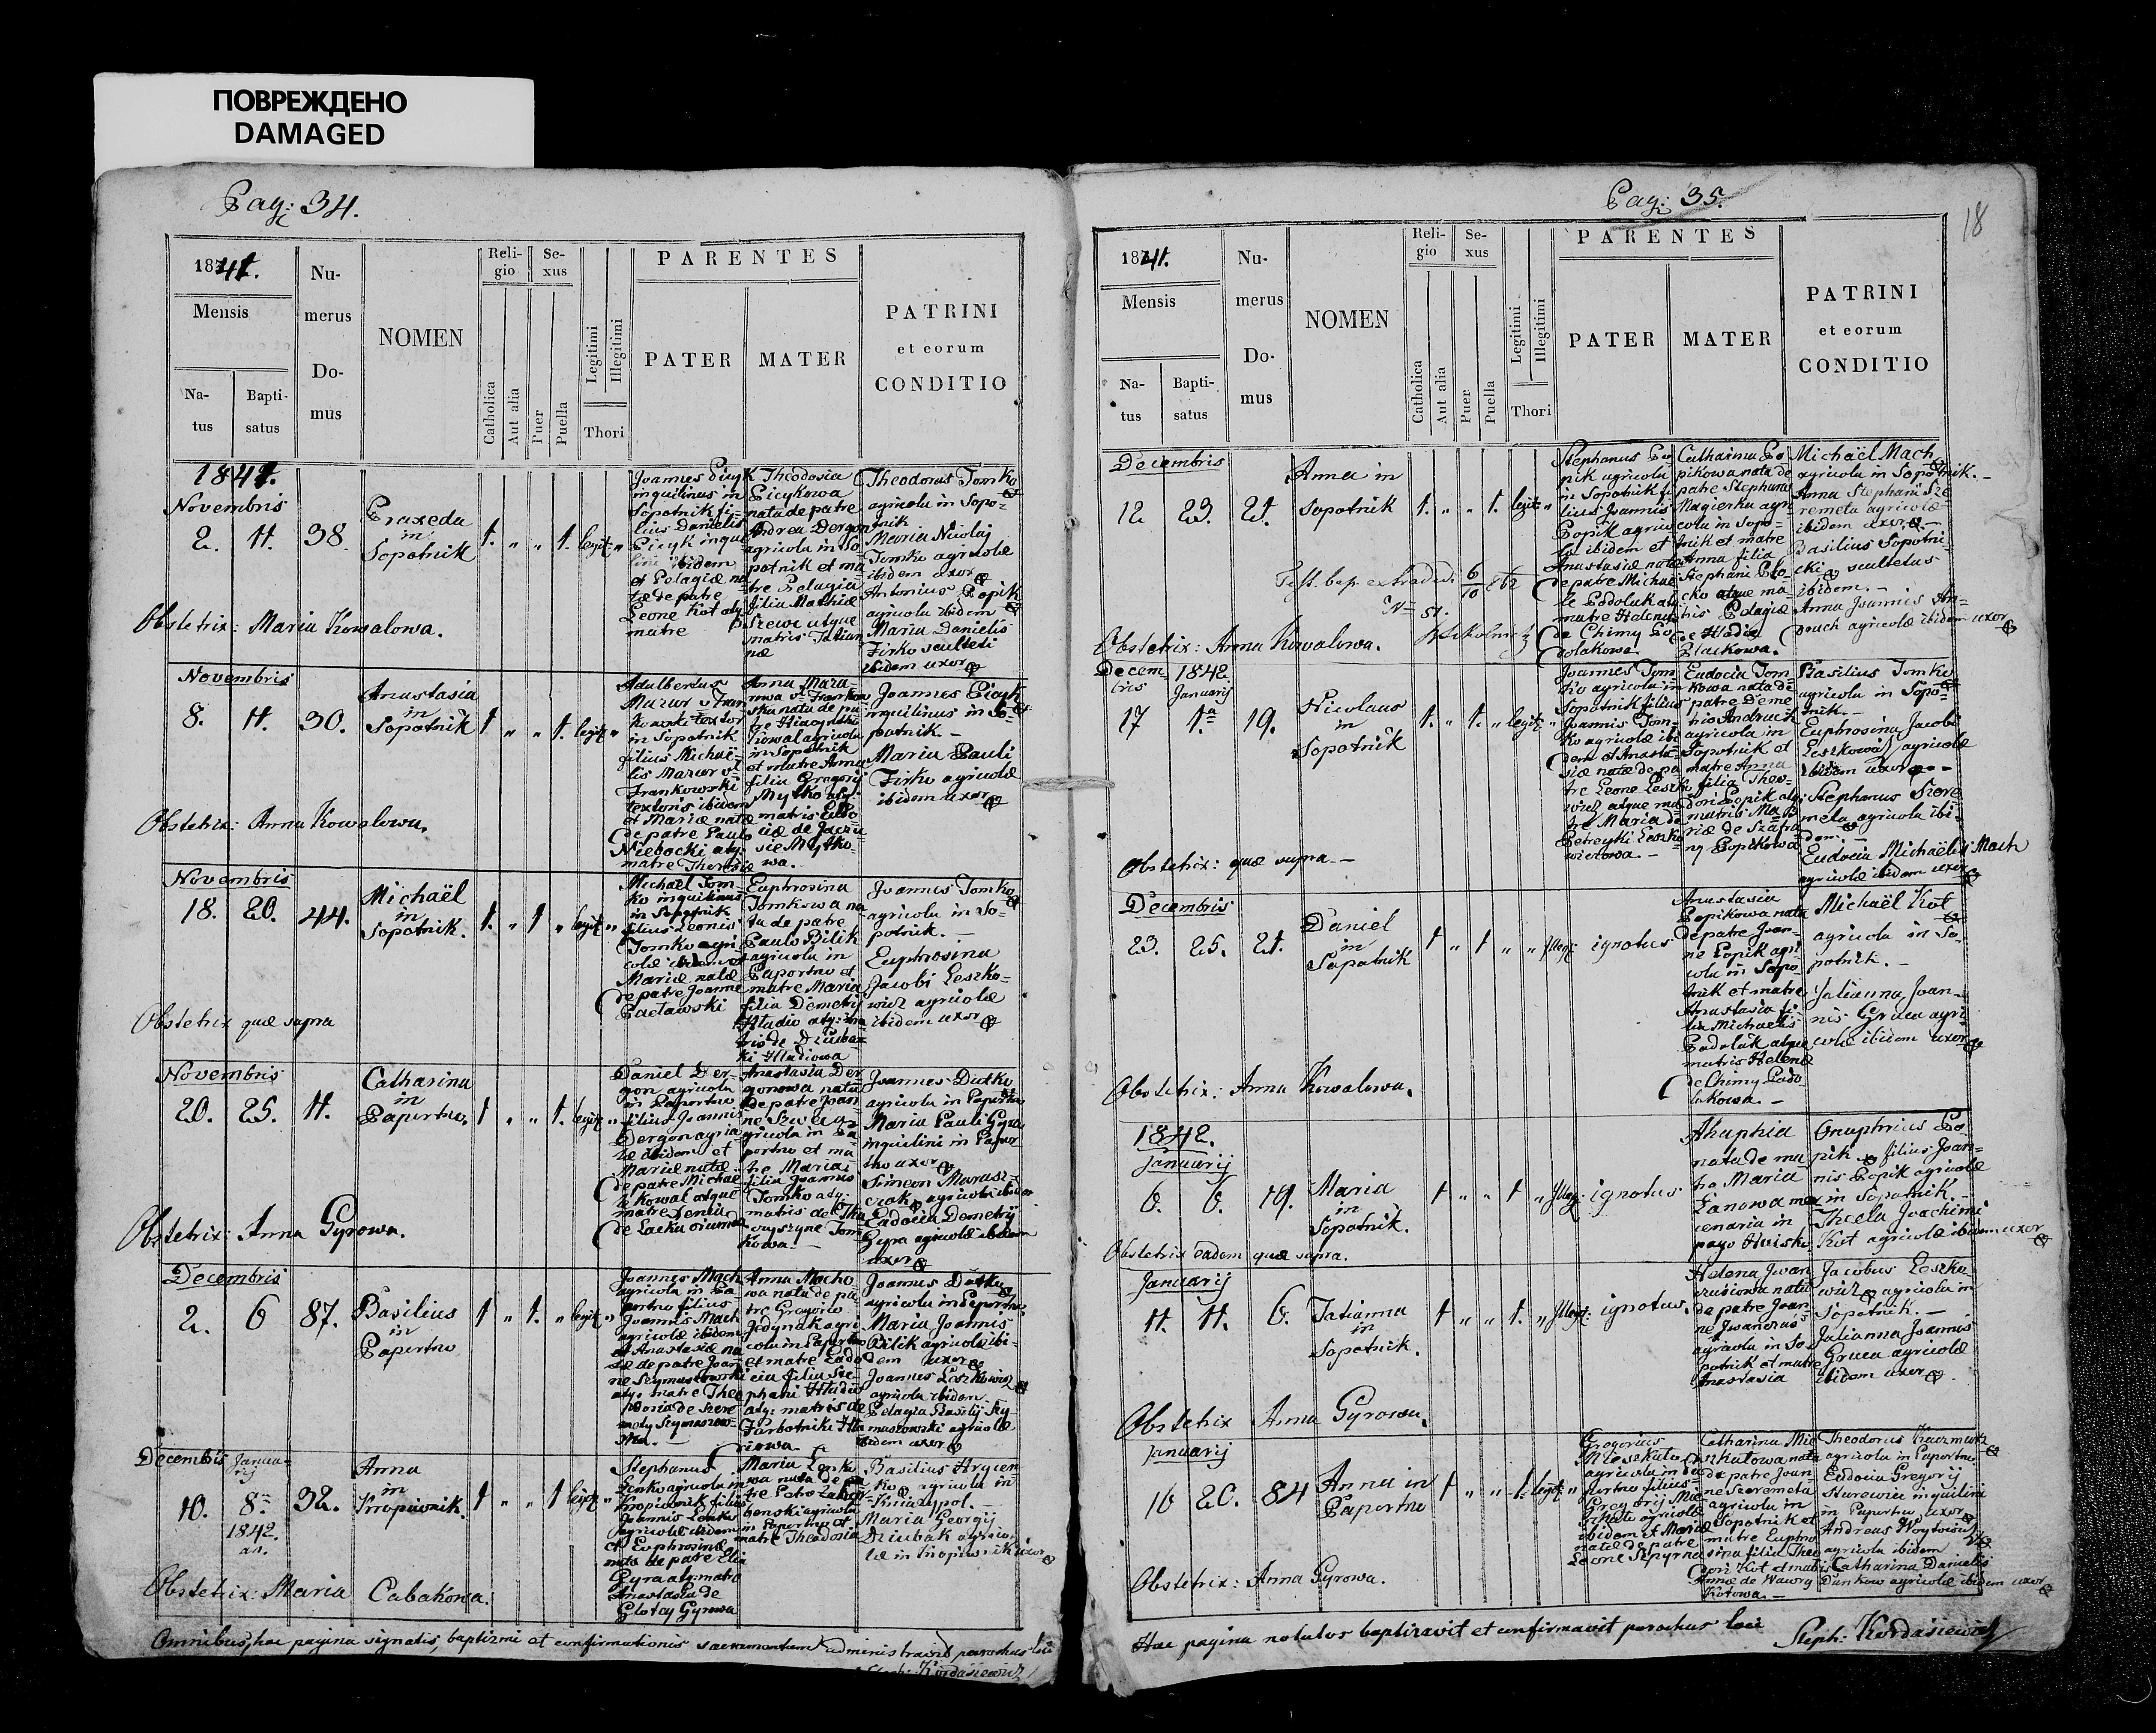 ПОВРЕЖДЕНО
DAMAGED
Pag: 34.
1841.
Mensis
Na-
tus
Bapti-
satus
Nu-
merus
Do-
mus
NOMEN
Reli-
gio
Catholica
Aut alia
Se-
xus
Puer
Puella
Legitimi
Illegitimi
Thori
PARENTES
PATER
MATER
PATRINI
et eorum
CONDITIO
1841.
Novembris
2. 11. 38.
Praxeda
in
Sopotnik
1. " " 1. legit: "
Joannes Picyk
inquilinus in
Sopotnik fi-
lius Danielis
Picyk inqui
lini ibidem
et Pelagiæ na
tæ de patre
Leone Kot atq
matre
Theodosia
Picykowa
nata de patre
Andrea Dergon
agricola in So-
potnik et ma
tre Pelagia
filia Mathiæ
Szewc atque
matris Tatian
næ
Theodorus Tomko
agricola in Sopo-
tnik
Maria Nicolaj
Tomko agricolæ
ibidem uxor
Antonius Popik
agricola ibidem
Maria Danielis
Firko sculteti
ibidem uxor
Obstetrix: Maria Kowalowa.
Novembris
8. 11. 30.
Anastasia
in
Sopotnik
1 " " 1. legit: "
Adalbertus
Mazur v Fran
kowski textor
in Sopotnik
filius Michaë-
lis Mazur v
Frankowski
textoris ibidem
et Mariæ natæ
de patre Paulo
Niebocki atq:
matre Theresiæ
Anna Mazu-
rowa v Frankow
ska nata de pa
tre Hiacyntho
Kowal agricola
in Sopotnik
et matre Anna
filia Gregorij
Mytko atq:
matris Eudo-
ciæ de Jaczu
sie Mytko-
wa.
Joannes Picyk
inquilinus in So-
potnik -
Maria Pauli
Firko agricolæ
ibidem uxor
Obstetrix: Anna Kowalowa.
Novembris
18. 20. 44.
Michaël
in
Sopotnik.
1. " 1 " legit: "
Michaël Tom-
ko inquilinus
in Sopotnik
filius Leonis
Tomko agri
colæ ibidem et
Mariæ natæ
de patre Joanne
Pactawski
Euphrosina
Tomkowa na
ta de patre
Paulo Bilik
agricola in
Paportno et
matre Maria
filia Demetrij
Hladio atq: ma
tris de Dziuba-
ki Hladiowa
Joannes Tomko
agricola in So-
potnik. -
Euphrosina
Jacobi Leszko-
wicz agricolæ
ibidem uxor
Obstetrix quæ supra
Novembris
20. 25. 11.
Catharina
in
Paportno.
1 " " 1. legit: "
Daniel Der-
gon agricola
in Paportno
filius Joannis
Dergon agrico
læ ibidem et
Mariæ natæ
de patre Michaë
le Kowal atque
matre Xenia
Anastasia Der
gonowa nata
de patre Joan
ne Szwec a-
gricola in Pa
portno et ma
tre Maria
filia Joannis
Tomko atq:
Joannes Dutko
agricola in Paportno
Maria Pauli Gyra
inquilini in Papor
tno uxor
Simeon Marusz-
czak agricola ibidem
Eudocia Demetrij
Gyra agricolæ ibidem
uxor
Obstetrix: Anna Gyrowa.
Decembris
2. 6 87.
Basilius
in
Paportno
1 " 1. " legit: "
Joannes Mach
agricola in Pa-
portno filius
Joannis Mach
agricolæ ibidem
et Anastasiæ na
tæ de patre Joan
Anna Macho
wa nata de pa
tre Gregorio
Jedynak agri
cola in Paportno
et matre Eudo
cia filia Ste-
phani Hladio
atq: matris de
Joannes Dutko
agricola in Paportno
Maria Joannis
Bilik agricolæ ibi-
dem uxor
Joannes Leszkowicz
agricola ibidem
Pelagia Basilij Szy-
muszowski agricolæ
ibidem uxor
Decembris Januarij
10. 8va 32.
1842.
Anna
in
Kropiwnik.
1 " " 1 legit: "
Stephanus
Lenko agricola in
Kropiwnik filius
Joannis Lenko
agricolæ ibidem
et Euphrosinæ
natæ de patre Elia
Gyra atq: matre
Anastasia de
Glotay Gyrowa
Maria Lenko
wa nata de pa
tre Petro
agricola
in Paportno et
matre Theodosia
Basilius Hrycen
ko agricola in
Kniazypol. -
Maria Georgij
Dziubak agrico
læ in Kropiwnik uxor
Obstetrix: Maria Cabakowa.
Omnibus hac pagina signatis, baptizmi et confirmationis sacramentum administravit parochus loci
Steph: Kordasiewicz
Pag: 35.
18
1841.
Mensis
Na-
tus
Bapti-
satus
Nu-
merus
Do-
mus
NOMEN
Reli-
gio
Catholica
Aut alia
Se-
xus
Puer
Puella
Legitimi
Illegitimi
Thori
PARENTES
PATER
MATER
PATRINI
et eorum
CONDITIO
Decembris
12 23. 21.
Anna in
Sopotnik
1. " " 1. legit: "
Stephanus Po
pik agricola
in Sopotnik fi
lius Joannis
Popik agrico
la ibidem et
Anastasiæ natæ
de patre Michaë
le Podolak atq:
matre Helena
de Chimy Po
dolakowa.
Catharina Po
pikowa nata de
patre Stephano
Magierka agri
cola in Sopo-
tnik et matre
Anna filia
Stephani Pla-
cko atque ma
tris Pelagiæ
de Hladio
Plackowa.
Michaël Mach
agricola in Sopotnik. -
Anna Stephani Sze
remeta agricolæ
ibidem uxor. -
Basilius Sopotni-
cki scultetus
ibidem. -
Anna Joannis An-
douch agricolæ ibidem uxor
Test. bap. extradidi 6/10 862
No 51.
Obstetrix: Anna Kowalowa.
Decem-
bris 1842
Januarij
17 1a 19.
Nicolaus
in
Sopotnik
1. " 1. " legit: "
Joannes Tom
ko agricola in
Sopotnik filius
Joannis Tom-
ko agricolæ ibi
dem et Anasta-
siæ natæ de pa
tre Leone Leszko
wicz atque ma
tre Maria de
Petreyki Leszko
wiczowa. -
Eudocia Tom
kowa nata de
patre Deme
trio Andruch
agricola in
Sopotnik et
matre Anna
filia Theo-
dori Popik atq:
matris Ma-
riæ de Szafra
ny Popikowa
Basilius Tomko
agricola in Sopo-
tnik. -
Euphrosina Jacobi
Leszkowicz agricolæ
ibidem uxor. -
Stephanus Szere
meta agricola ibi-
dem.
Eudocia Michaëlis Mach
agricolæ ibidem uxor
Obstetrix: quæ supra. -
Decembris
23. 25. 21.
Daniel
in
Sopotnik
1 " 1 " " Illeg: ignotus
Anastasia
Popikowa nata
de patre Joan-
ne Popik agri
cola in Sopo-
tnik et matre
Anastasia fi-
lia Michaëlis
Podolak atque
matris Helenæ
de Chimy Podo
lakowa. -
Michaël Kot
agricola in So-
potnik. -
Julianna Joan-
nis Gruca agri-
colæ ibidem uxor
Obstetrix: Anna Kowalowa.
1842.
Januarij
6. 6. 19.
Maria
in
Sopotnik.
1 " " 1 " Illeg: ignotus
Ahaphia
nata de ma
tre Maria
Panowa mer
cenaria in
pago Huisko
Onuphrius Po-
pik filius Joan-
nis Popik agricolæ
in Sopotnik. -
Thecla Joachimi
Kot agricolæ ibidem uxor
Obstetrix eadem quæ supra.
Januarij
11. 11. 6.
Tatianna
in
Sopotnik.
1 " " 1. " Illeg: ignotus.
Helena Jwan
czusiowa nata
de patre Joan-
ne Jwanczus
agricola in So
potnik et matre
Anastasia
Jacobus Leszko
wicz agricola in
Sopotnik. -
Julianna Joannis
Gruca agricolæ
ibidem uxor.
Obstetrix Anna Gyrowa.
Januarij
16 20. 84
Anna in
Paportno
1 " " 1. legit: "
Gregorius
Mieszkalo
agricola in Pa
portno filius
Gregorij Mie-
szkalo agricolæ
ibidem et Mariæ
natæ de patre
Leone Sepyrna
Catharina Mie
szkalowa nata
de patre Joan-
ne Szeremeta
agricola in
Sopotnik et
matre Euphro
sina filia Theo
dori Kot et matris
Annæ de Wawro
Kotowa. -
Theodorus Kaczmarz
agricola in Paportno
Eudocia Gregorij
Sturewicz inquilini
in Paportno uxor
Andreas Woytowicz
agricola ibidem
Catharina Danielis
Dunkow agricolæ ibidem uxor
Obstetrix: Anna Gyrowa.
Hac pagina notatos baptizavit et confirmavit parochus loci
Steph: Kordasiewicz